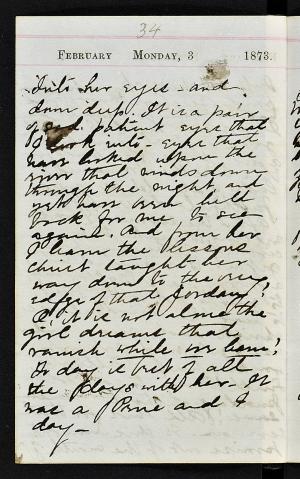 34
February Monday, 3 1873.
into her eyes - and
down deep. It is a pair
of patient eyes that
I look into - eyes that
have looked upon the
river that winds down
through the night and
yet have over
back for me to see
again. And from her
I learn the lessons
Christ taught her
way down to the very
edge of that Jordan!
O it is not alone the
girl dreams that
vanish while we have!
To day is best of all
the days with her - It
was a and I
day -